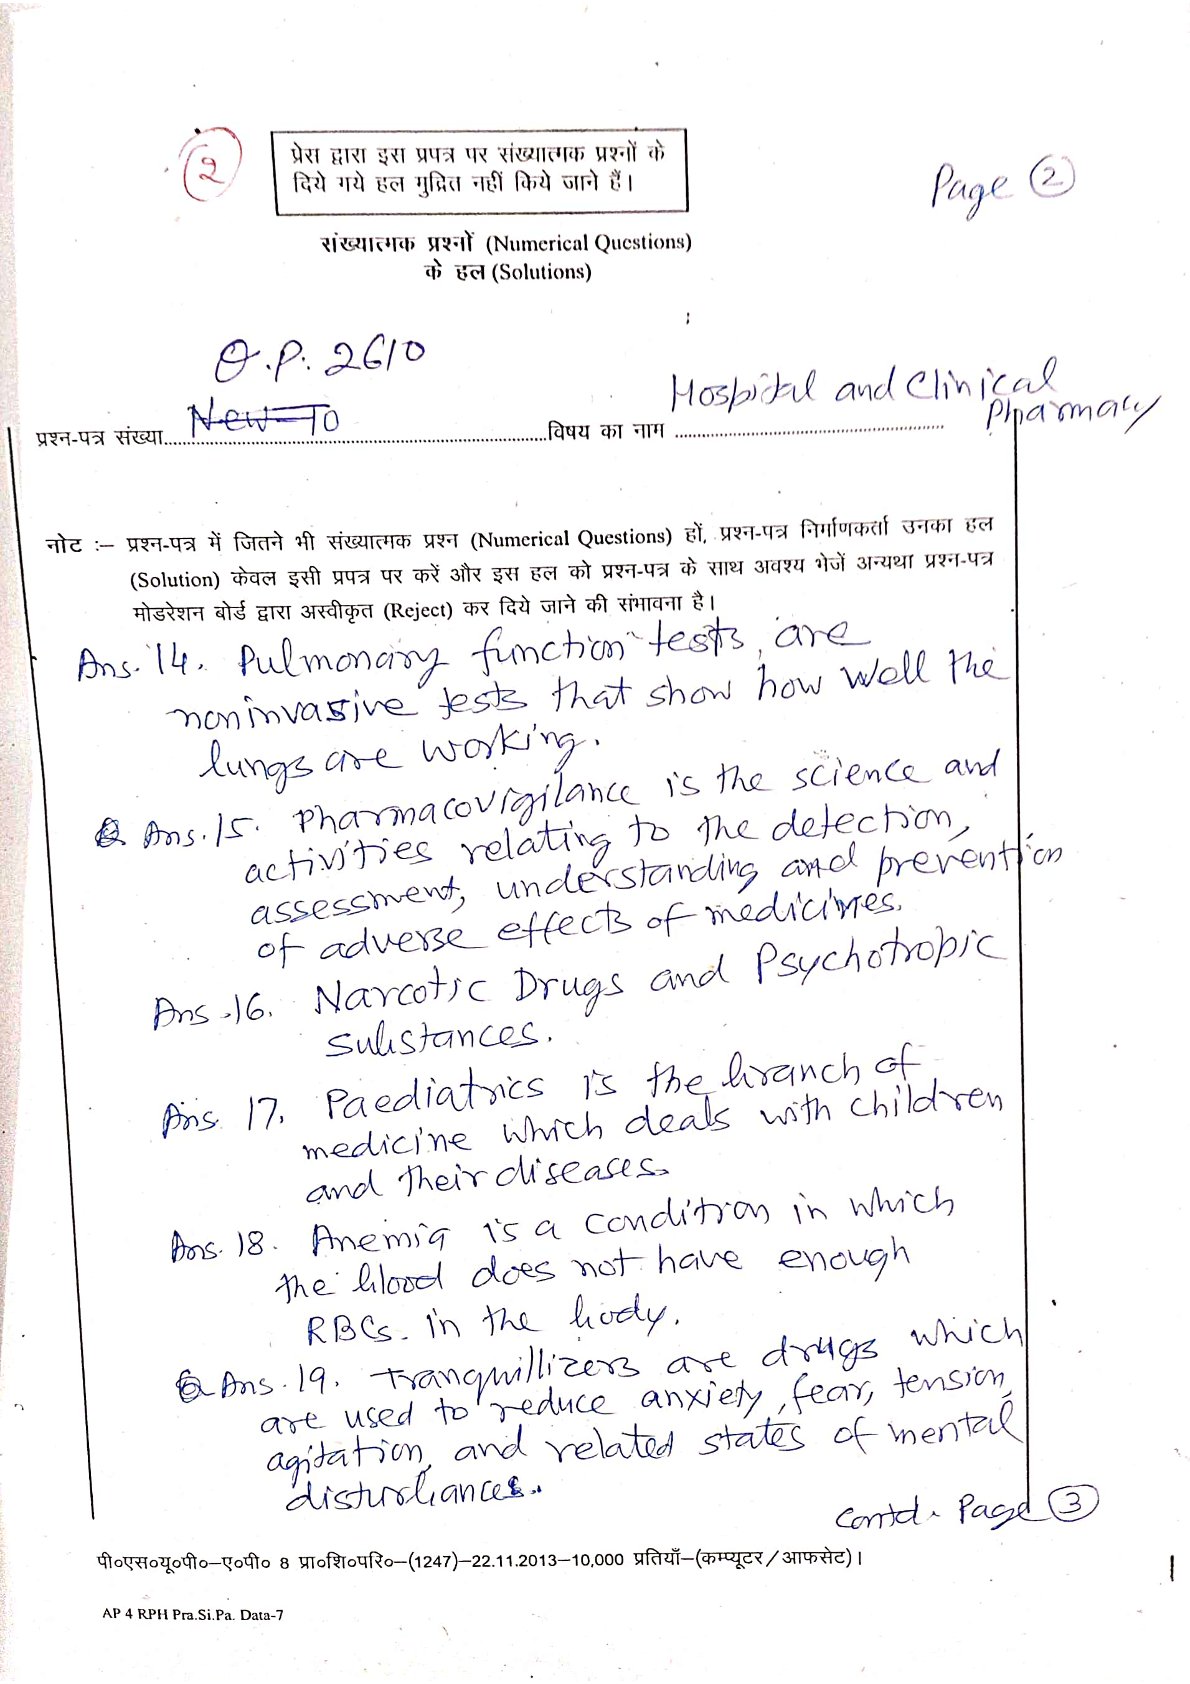 2
प्रेस द्वारा इस प्रपत्र पर संख्यात्मक प्रश्नों के
दिये गये हल मुद्रित नहीं किये जाने हैं।
Page 2
संख्यात्मक प्रश्नों (Numerical Questions)
के हल (Solutions)
O.P. 2610
New-10
Hospital and Clinical
Pharmacy
प्रश्न-पत्र संख्या..........विषय का नाम ..........
नोट :– प्रश्न-पत्र में जितने भी संख्यात्मक प्रश्न (Numerical Questions) हों, प्रश्न-पत्र निर्माणकर्ता उनका हल
(Solution) केवल इसी प्रपत्र पर करें और इस हल को प्रश्न-पत्र के साथ अवश्य भेजें अन्यथा प्रश्न-पत्र
मोडरेशन बोर्ड द्वारा अस्वीकृत (Reject) कर दिये जाने की संभावना है।
Ans. 14. Pulmonary function tests, are
noninvasive tests that show how well the
lungs are working.
Ans. 15. Pharmacovigilance is the science and
activities relating to the detection,
assessment, understanding and prevention
of adverse effects of medicines.
Ans. 16. Narcotic Drugs and Psychotropic
Substances.
Ans. 17. Paediatrics is the branch of
medicine which deals with children
and their diseases.
Ans. 18. Anemia is a condition in which
the blood does not have enough
RBCs. in the body.
Ans. 19. Tranquillizers are drugs which
are used to reduce anxiety, fear, tension,
agitation, and related states of mental
disturbances.
Contd. Page 3
पी०एस०यू०पी०–ए०पी० 8 प्रा०शि०परि०–(1247)–22.11.2013–10,000 प्रतियाँ–(कम्प्यूटर/आफसेट)।
AP 4 RPH Pra.Si.Pa. Data-7